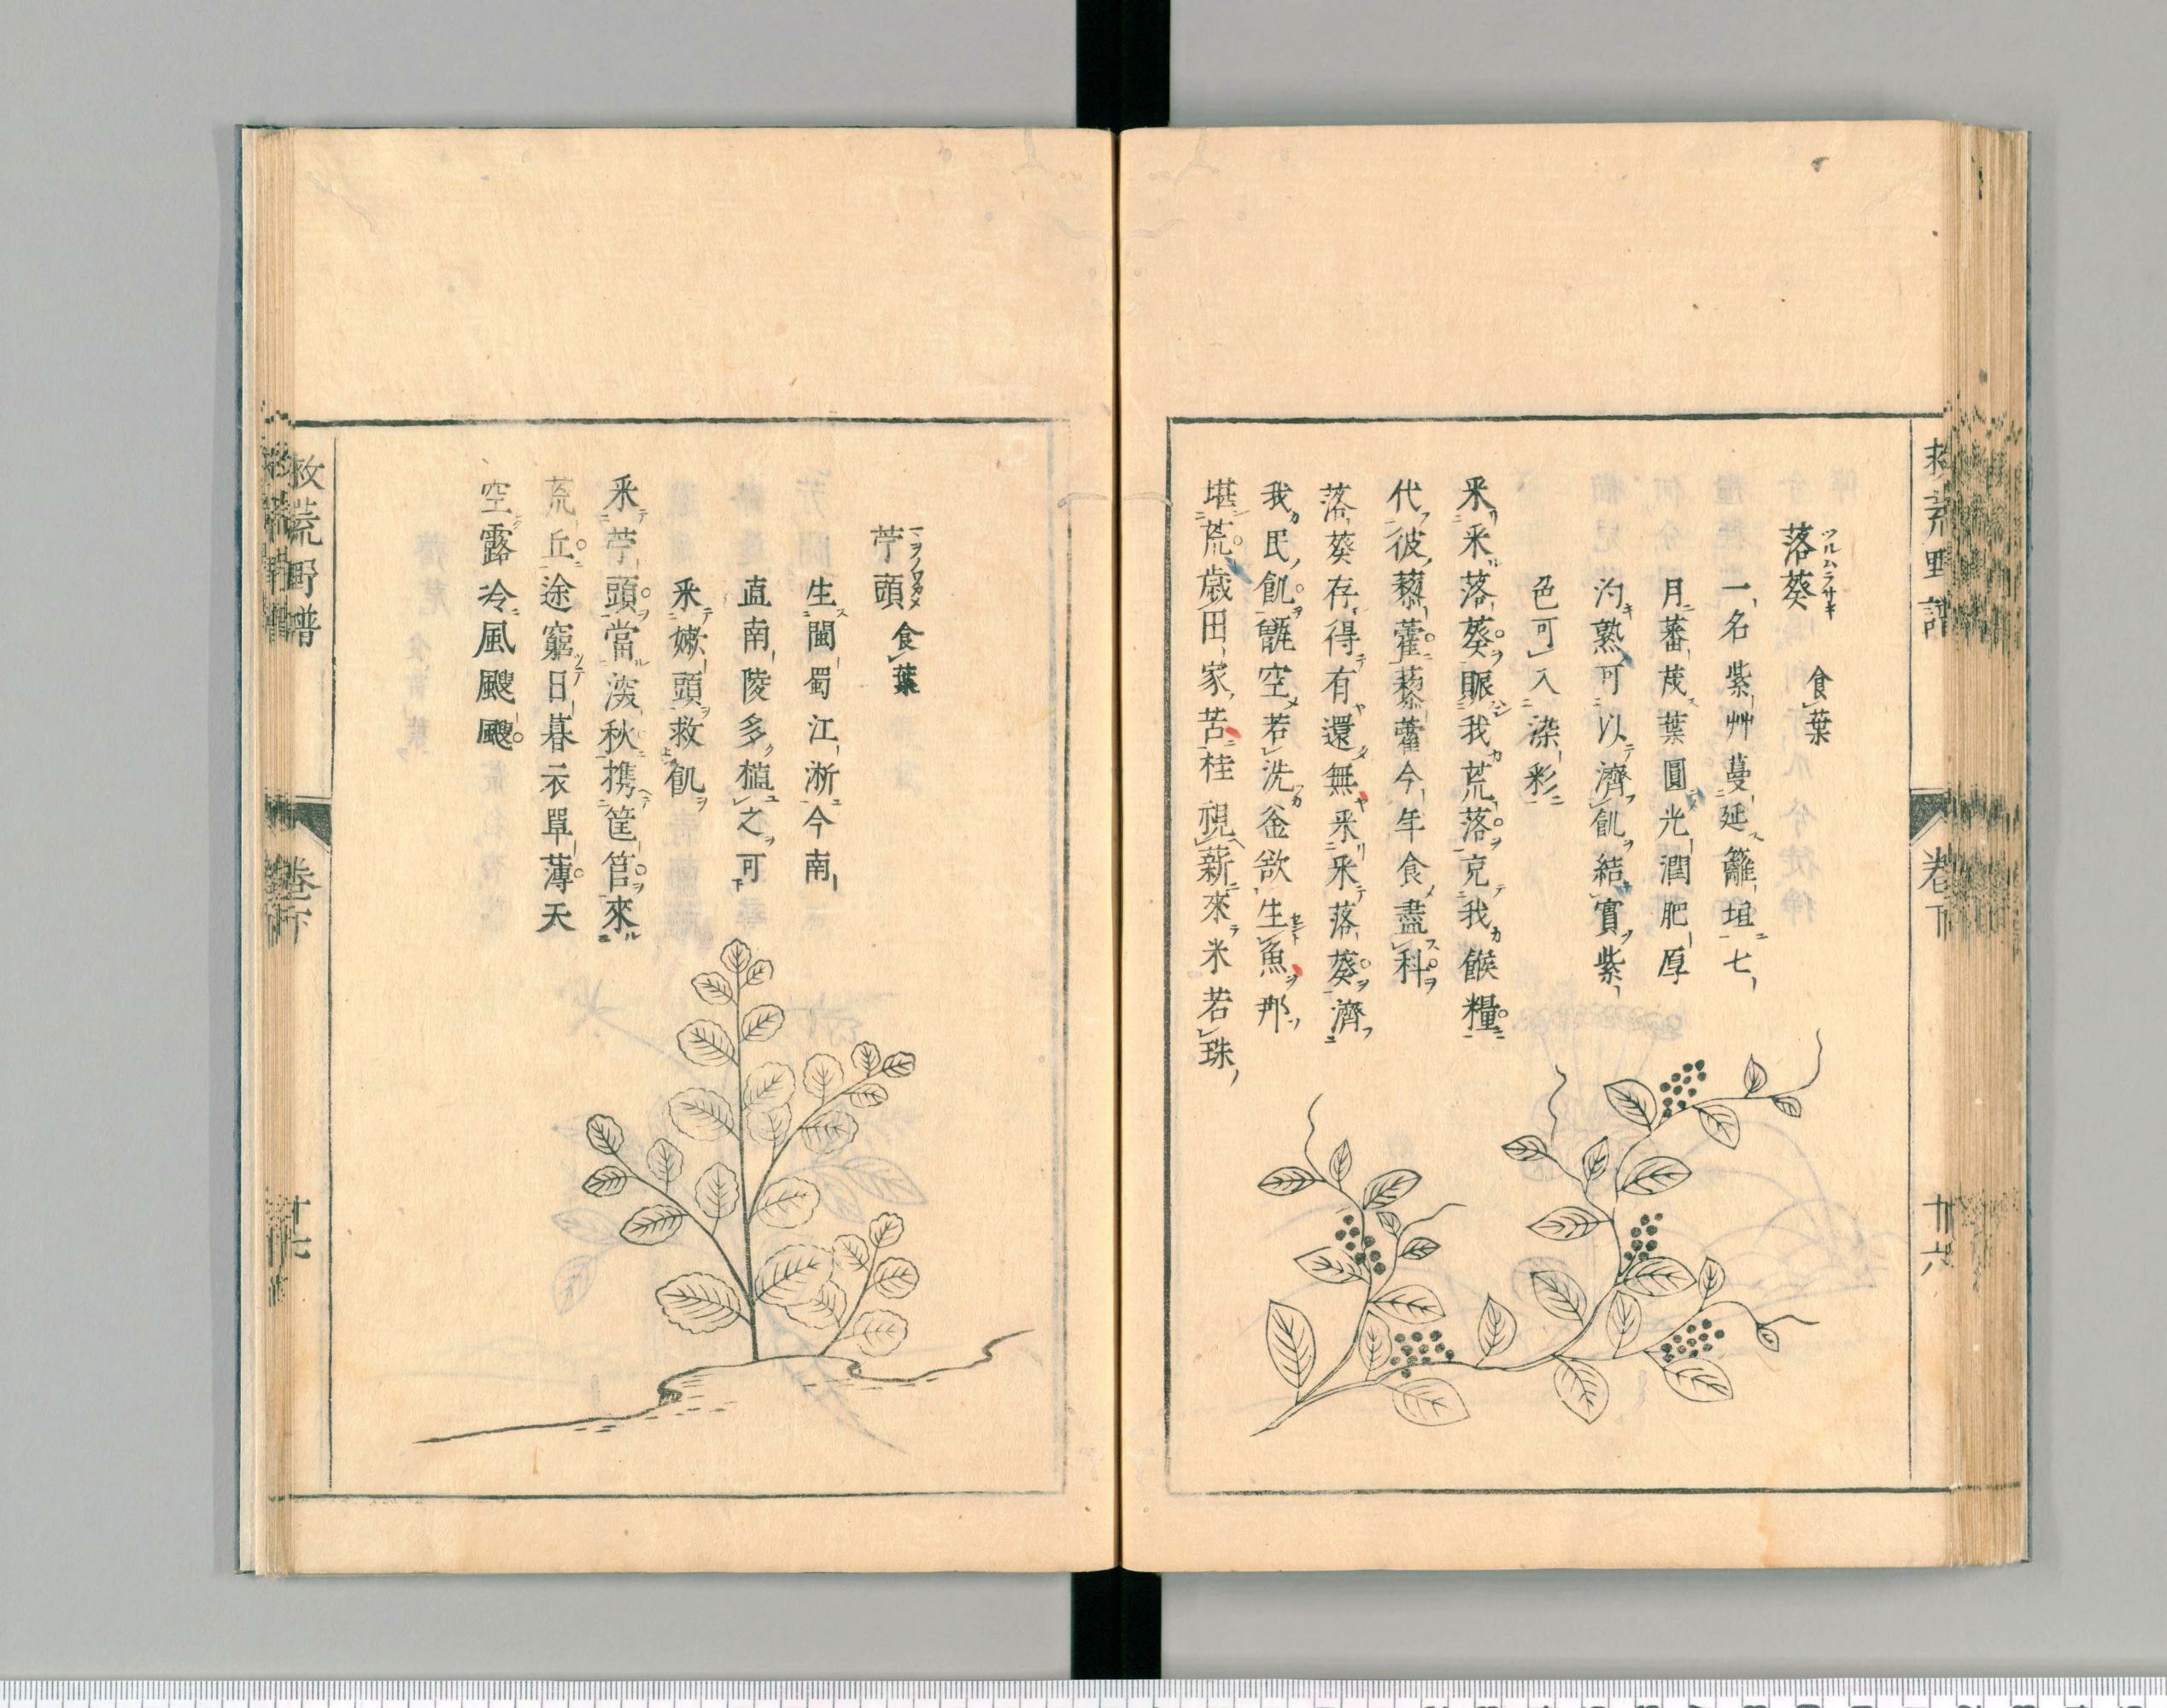 落葵 食葉
ツルムラサキ
一名紫艸蔓延籬垣七
月蕃茂葉圓光潤肥厚
汋熟可以濟飢結實紫
色可入染彩
釆釆落葵賑我荒落克我餱糧
代彼藜藿藜藿今年食盡科
落葵存得有還無釆釆落葵濟
我民飢甑空若洗釜欲生魚那
堪荒歳田家苦桂視薪來米若珠
卷下
廿六
苧頭 食葉
生閩蜀江淅今南
直南陵多植之可
釆嫰頭救飢
釆苧頭當深秋携筐筥來
荒丘途窮日暮衣單薄天
空露冷風颼颼
救荒野譜
卷下